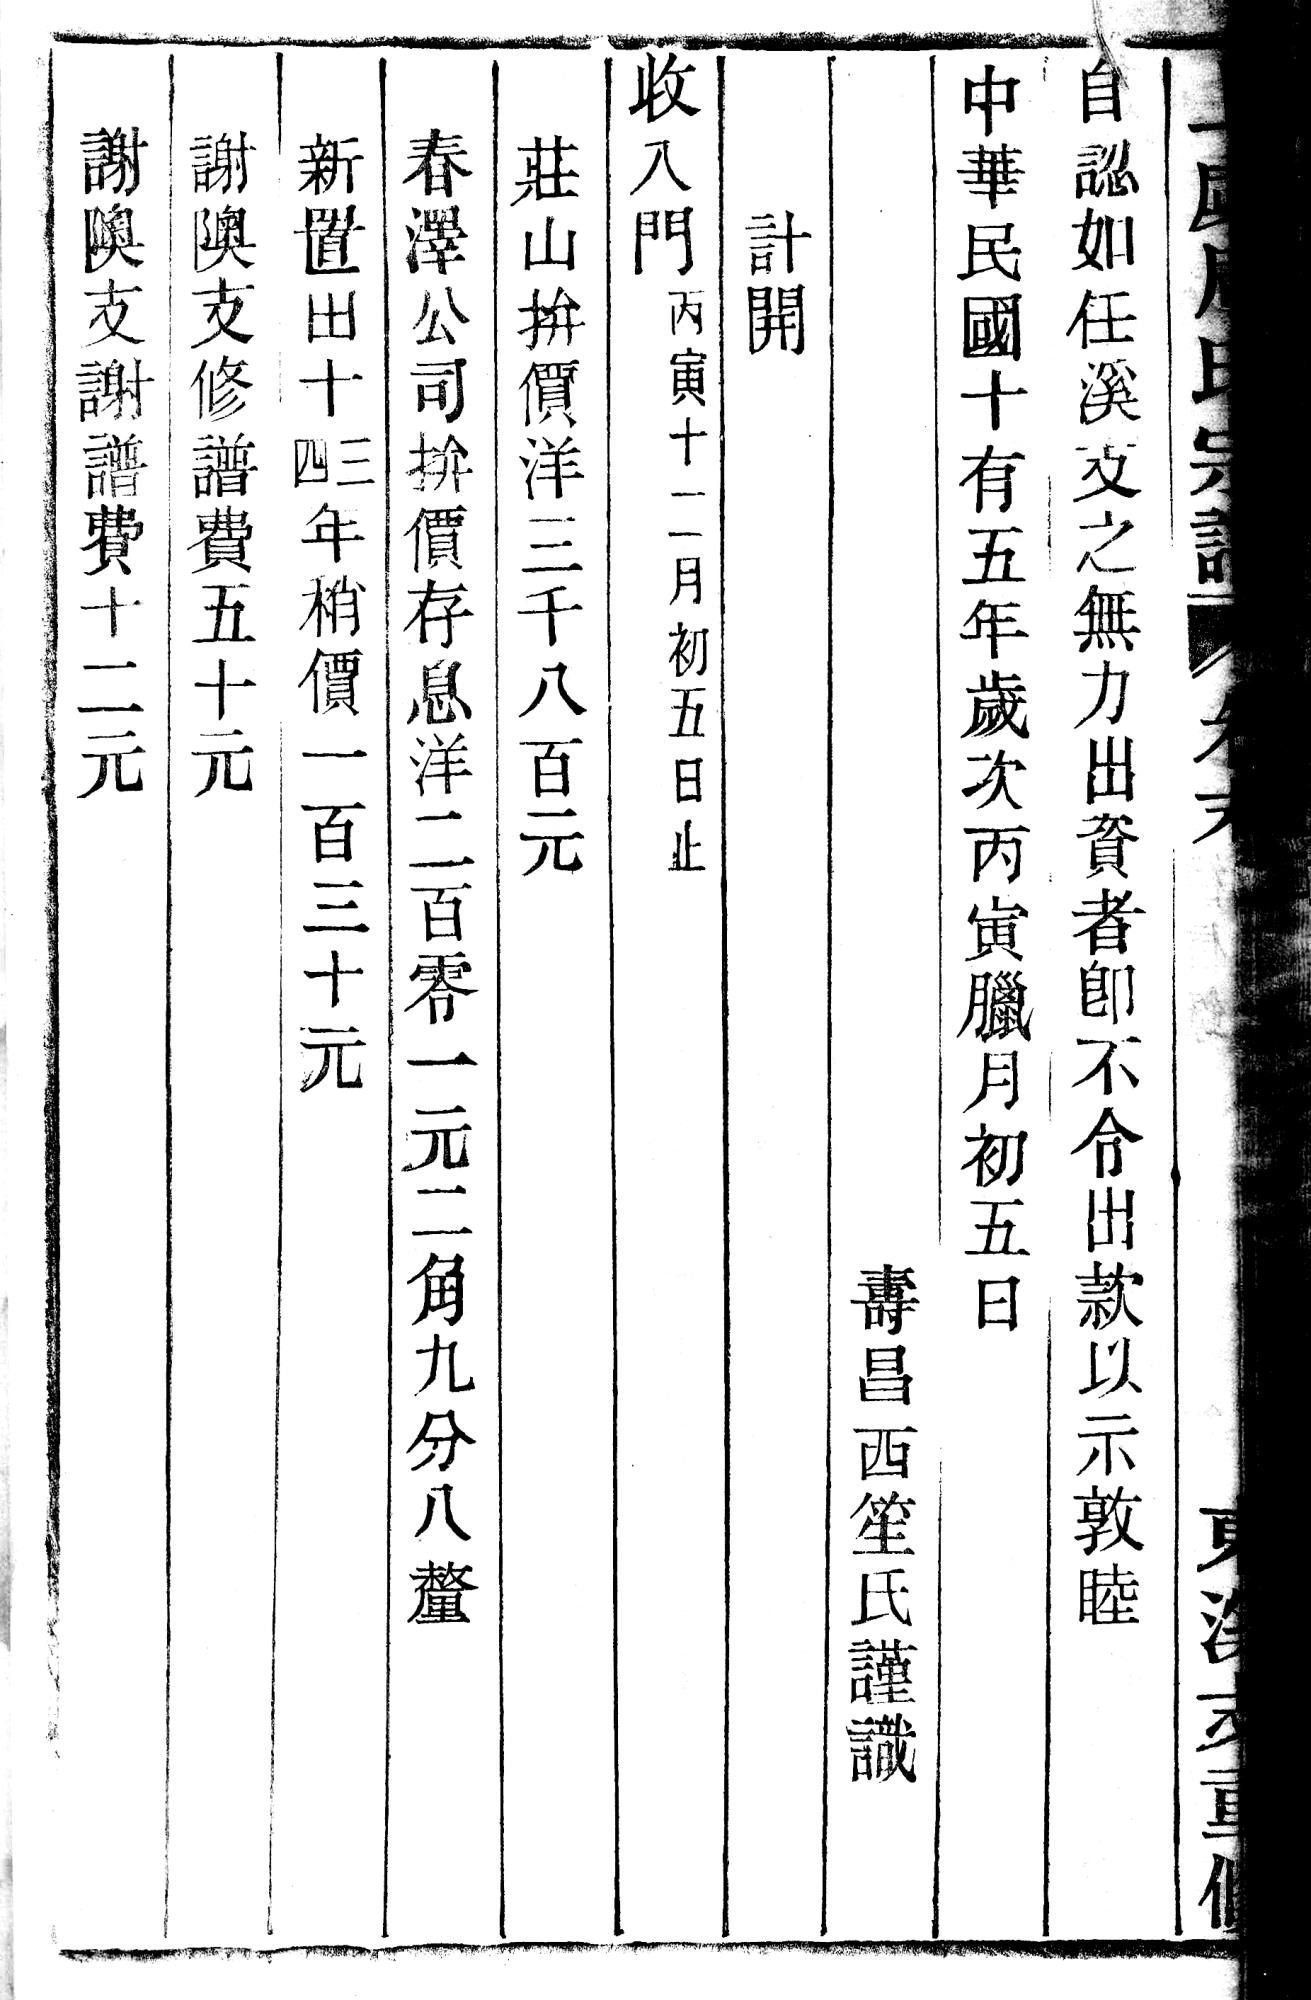 氏宗譜 卷末 東溪支重修
自認如任溪支之無力出資者卽不令出款以示敦睦
中華民國十有五年歲次丙寅臘月初五日
壽昌西笙氏謹識
計開
收入門 丙寅十二月初五日止
莊山拚價洋三千八百元
春澤公司拚價存息洋二百零一元二角九分八釐
新置出十三四年梢價一百三十元
謝隩支修譜費五十元
謝隩支謝譜費十二元